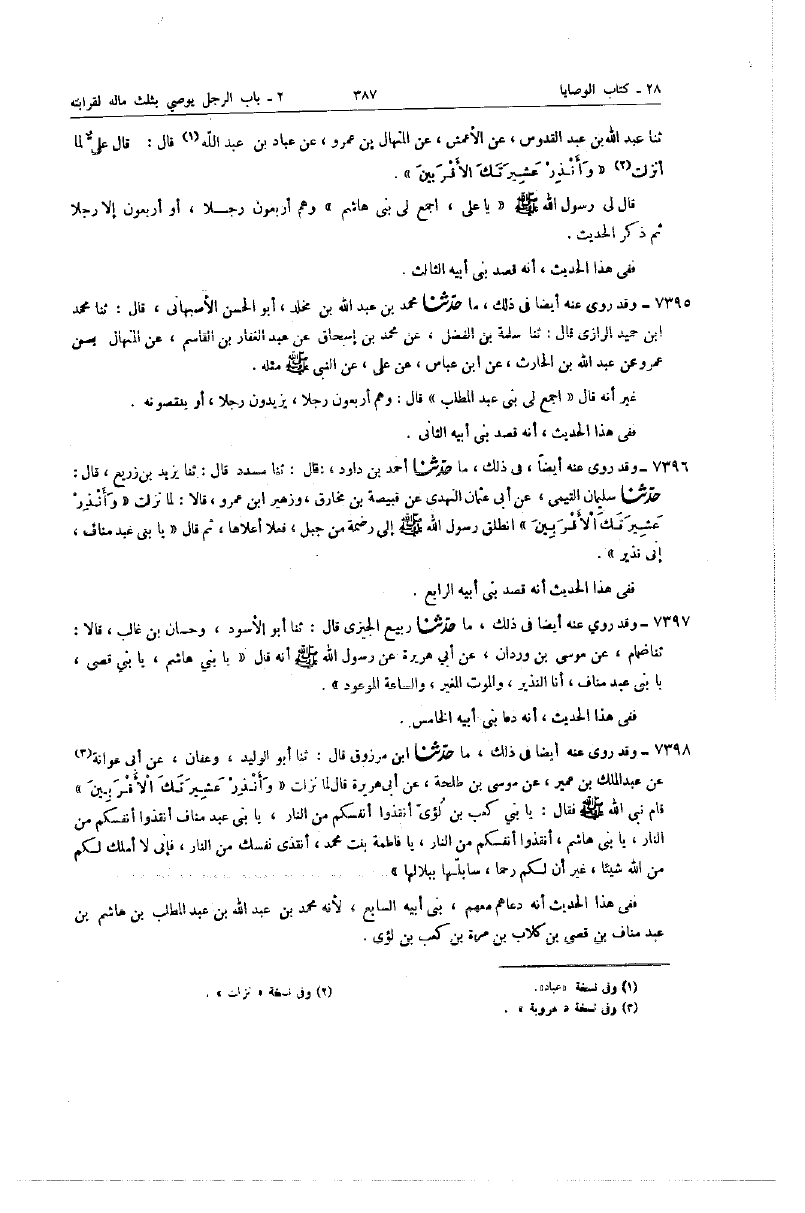 ٢٨ - كتاب الوصايا ٣٨٧ ٢ - باب الرجل يوصي بثلث ماله لقرابته
ثنا عبد الله بن عبد القدوس ، عن الأعمش ، عن المنهال بن عمرو ، عن عباد بن عبد اللّه(١) قال : قال علي لما
أنزلت(٢) « وَأَنْذِرْ عَشِيرَتَكَ الأَقْرَبِينَ » .
قال لى رسول الله ﷺ « يا على ، اجمع لى بنى هاشم » وهم أربعون رجلا ، أو أربعون إلا رجلا
ثم ذكر الحديث .
ففى هذا الحديث ، أنه قصد بنى أبيه الثالث .
٧٣٩٥ - وقد روى عنه أيضا فى ذلك ، ما حدّثنا محمد بن عبد الله بن مخلد ، أبو الحسن الأصبهانى ، قال : ثنا محمد
ابن حميد الرازى قال : ثنا سلمة بن الفضل ، عن محمد بن إسحاق عن عبد الغفار بن القاسم ، عن المنهال بن
عمرو عن عبد الله بن الحارث ، عن ابن عباس ، عن على ، عن النبى ﷺ مثله .
غير أنه قال « اجمع لى بنى عبد المطلب » قال : وهم أربعون رجلا ، يزيدون رجلا ، أو ينقصونه .
ففى هذا الحديث ، أنه قصد بنى أبيه الثانى .
٧٣٩٦ - وقد روى عنه أيضاً ، فى ذلك ، ما حدّثنا أحمد بن داود ، قال : ثنا مسدد قال : ثنا يزيد بن زريع ، قال :
حدّثنا سليمان التيمى ، عن أبى عثمان النهدى عن قبيصة بن مخارق ، وزهير ابن عمرو ، قالا : لما نزلت « وَأَنْذِرْ
عَشِيرَتَكَ الْأَقْرَبِينَ » انطلق رسول الله ﷺ إلى رضمة من جبل ، فعلا أعلاها ، ثم قال « يا بنى عبد مناف ،
إنى نذير » .
ففى هذا الحديث أنه قصد بنى أبيه الرابع .
٧٣٩٧ - وقد روي عنه أيضا فى ذلك ، ما حدّثنا ربيع الجيزى قال : ثنا أبو الأسود ، وحسان بن غالب ، قالا :
ثنا ضمام ، عن موسى بن وردان ، عن أبي هريرة عن رسول الله ﷺ أنه قال « يا بني هاشم ، يا بني قصى ،
يا بنى عبد مناف ، أنا النذير ، والموت المغير ، والساعة الموعود » .
ففى هذا الحديث ، أنه دعا بنى أبيه الخامس .
٧٣٩٨ - وقد روى عنه أيضا فى ذلك ، ما حدّثنا ابن مرزوق قال : ثنا أبو الوليد ، وعفان ، عن أبى عوانة(٣)
عن عبدالملك بن عمير ، عن موسى بن طلحة ، عن أبى هريرة قال لما نزلت « وَأَنْذِرْ عَشِيرَتَكَ الْأَقْرَبِينَ »
قام نبي الله ﷺ فقال : يا بني كعب بن لُؤىّ أنقذوا أنفسكم من النار ، يا بنى عبد مناف أنقذوا أنفسكم من
النار ، يا بنى هاشم ، أنقذوا أنفسكم من النار ، يا فاطمة بنت محمد ، أنقذى نفسك من النار ، فإنى لا أملك لكم
من الله شيئا ، غير أن لكم رحما ، سابلّها ببلالها »
ففى هذا الحديث أنه دعاهم معهم ، بنى أبيه السابع ، لأنه محمد بن عبد الله بن عبد المطلب بن هاشم بن
عبد مناف بن قصى بن كلاب بن مرة بن كعب بن لؤى .
(١) وفى نسخة «عباد». (٢) وفى نسخة « نزلت » .
(٣) وفى نسخة « عروبة » .